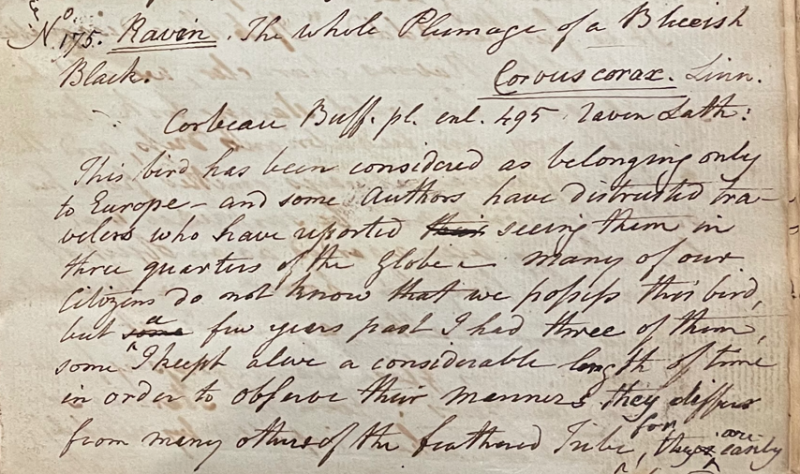 No. 175. Ravin. The whole Plumage of a Blueish
Black. Corvus corax. Linn.
Corbeau Buff. pl. enl. 495 ravin Lath:
This bird has been considered as belonging only
to Europe – and some Authors have distrusted tra-
velers who have reported their seeing them in
three quarters of the Globe – many of our
Citizens do not know that we possess this bird,
but some a few years past I had three of them,
some I kept alive a considerable length of time
in order to observe their manners they differ
from many others of the feathered Tribe, for they are easily